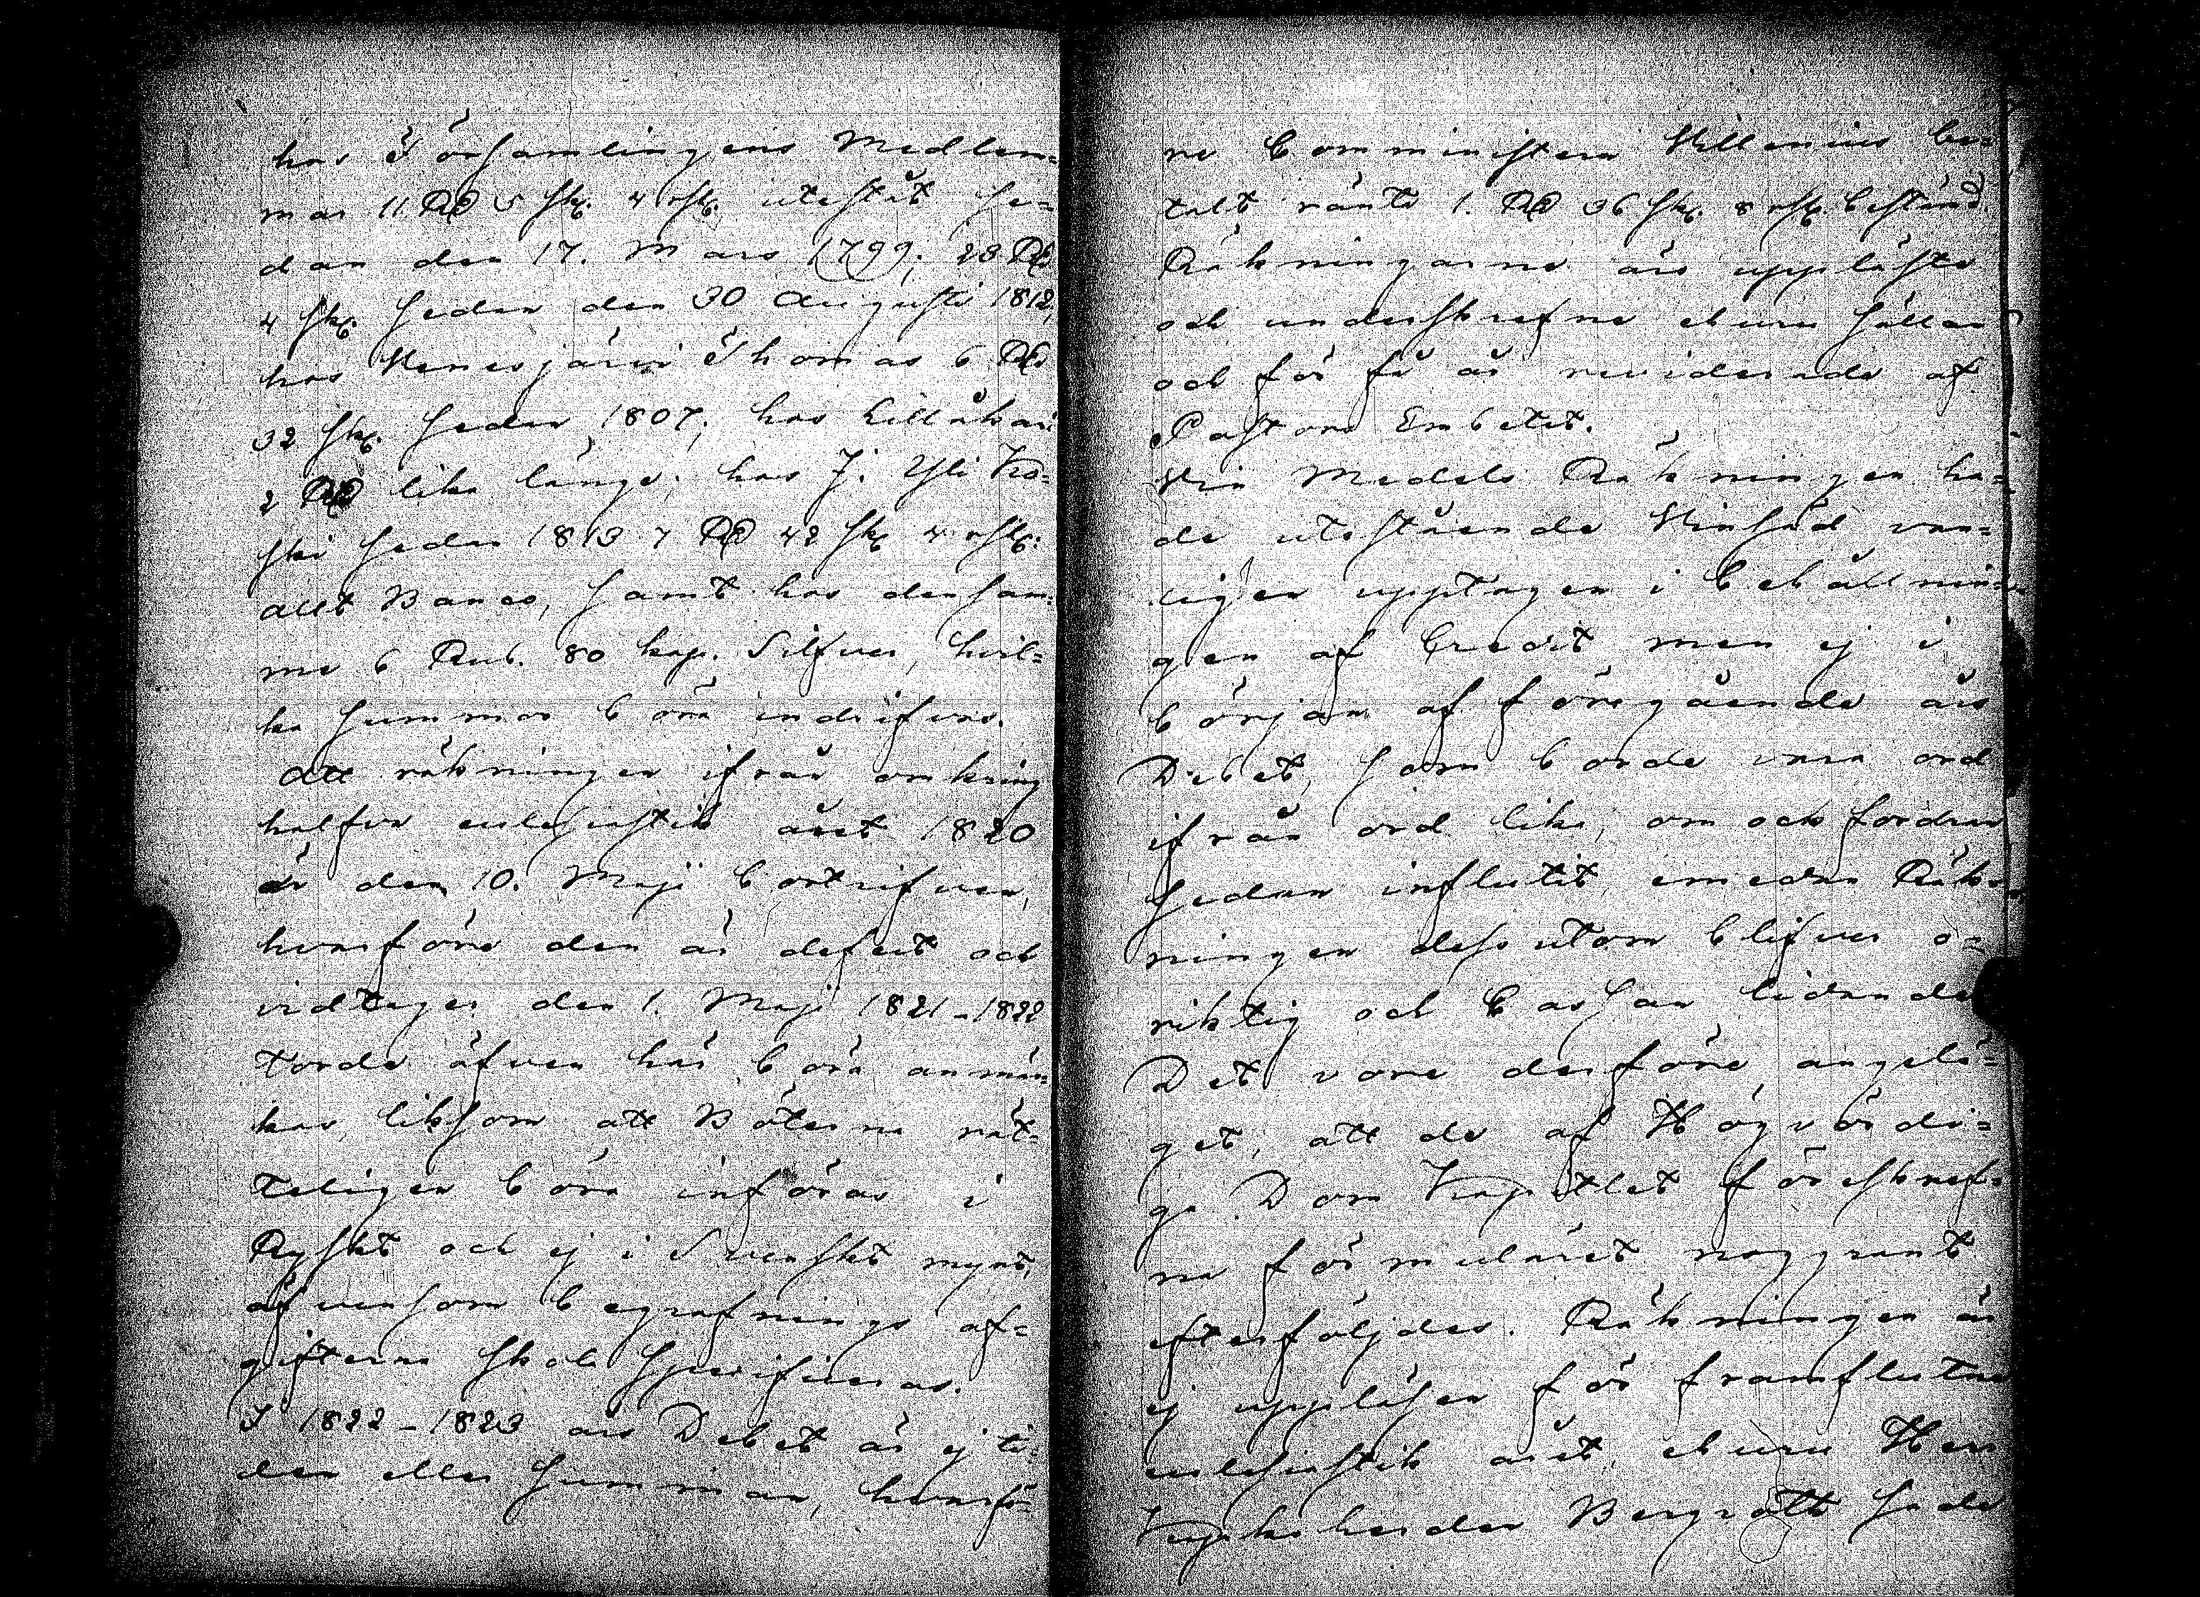 hos Församlingens Medlem-
mar 11 RD 5 sk. 4 rst. utestått se-
dan den 17. Mars 1799; 23 RD
4 sk. sedan den 30 Augusti 1812,
hos Venesjärvi Thomas 6 RD
32 sk. sedan 1807; hos Lillåkari
2 RD lika länge; hos J. Yli Ko-
ski sedan 1813 7 RD 42 sk 4 rst.
allt Banco, samt hos densam-
me 6 Rub. 80 kop. Silfver, hvil-
ka summor böra indrifvas.
Att räkningen ifrån omkring
halfva ecklesiastik året 1820
är den 10. Maji bortrifven,
hvarföre den är defect och
vidtager den 1. Maji 1821-1822
torde äfven här böra anmär-
kas, liksom att Böterna rät-
teligen böra införas i
Ryskt och ej i Svenskt mynt,
äfvensom begrafnings af-
gifterna skola specificeras.
I 1822-1823 års Debet är ej ti-
den eller summan, hvarfö-
re Comministern Villenius be-
talt ränta 1. RD 36 sk. 8 rst. bestämd.
Räkningarne äro uppläste
och underskrefne ehuru sällan
och för få år reviderade af
Pastors Embetet.
Vin Medels Räkningen ha-
de utestående Vinsäd van-
ligen upptagen i Behållnin-
gen af Credit men ej i
början af föregående års
Debet, som borde vara ord
ifrån ord lika, om ock fordran
sedan influtit, emedan Räk-
ningen dessutom blifver o-
riktig och Cassan lidande
Det vore derföre angelä-
get, att de af Högvördi-
ga Dom Kapitlet föreskref-
na formuläret noggrant
efterföljdes. Räkningen är
ej uppläsen för framflutna
ecklesiastik året, ehuru Herr
Kyrkoherden Bergroth hade